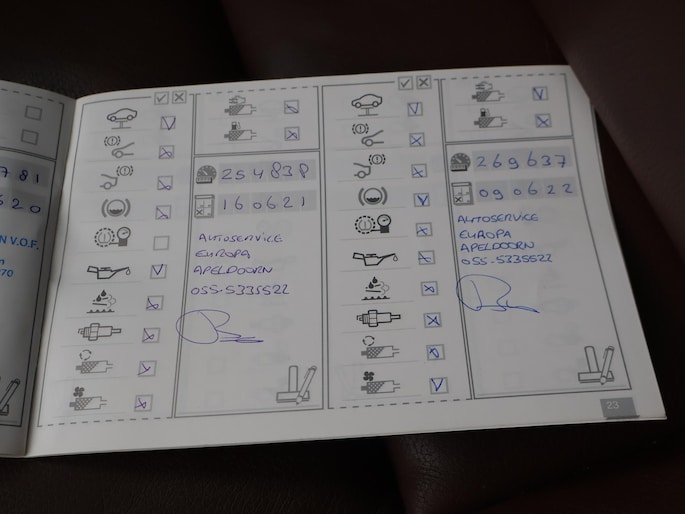 781
520
N V.O.F.
70
254838
160621
AUTOSERVICE
EUROPA
APELDOORN
055-5335522
269637
090622
AUTOSERVICE
EUROPA
APELDOORN
055-5335522
23